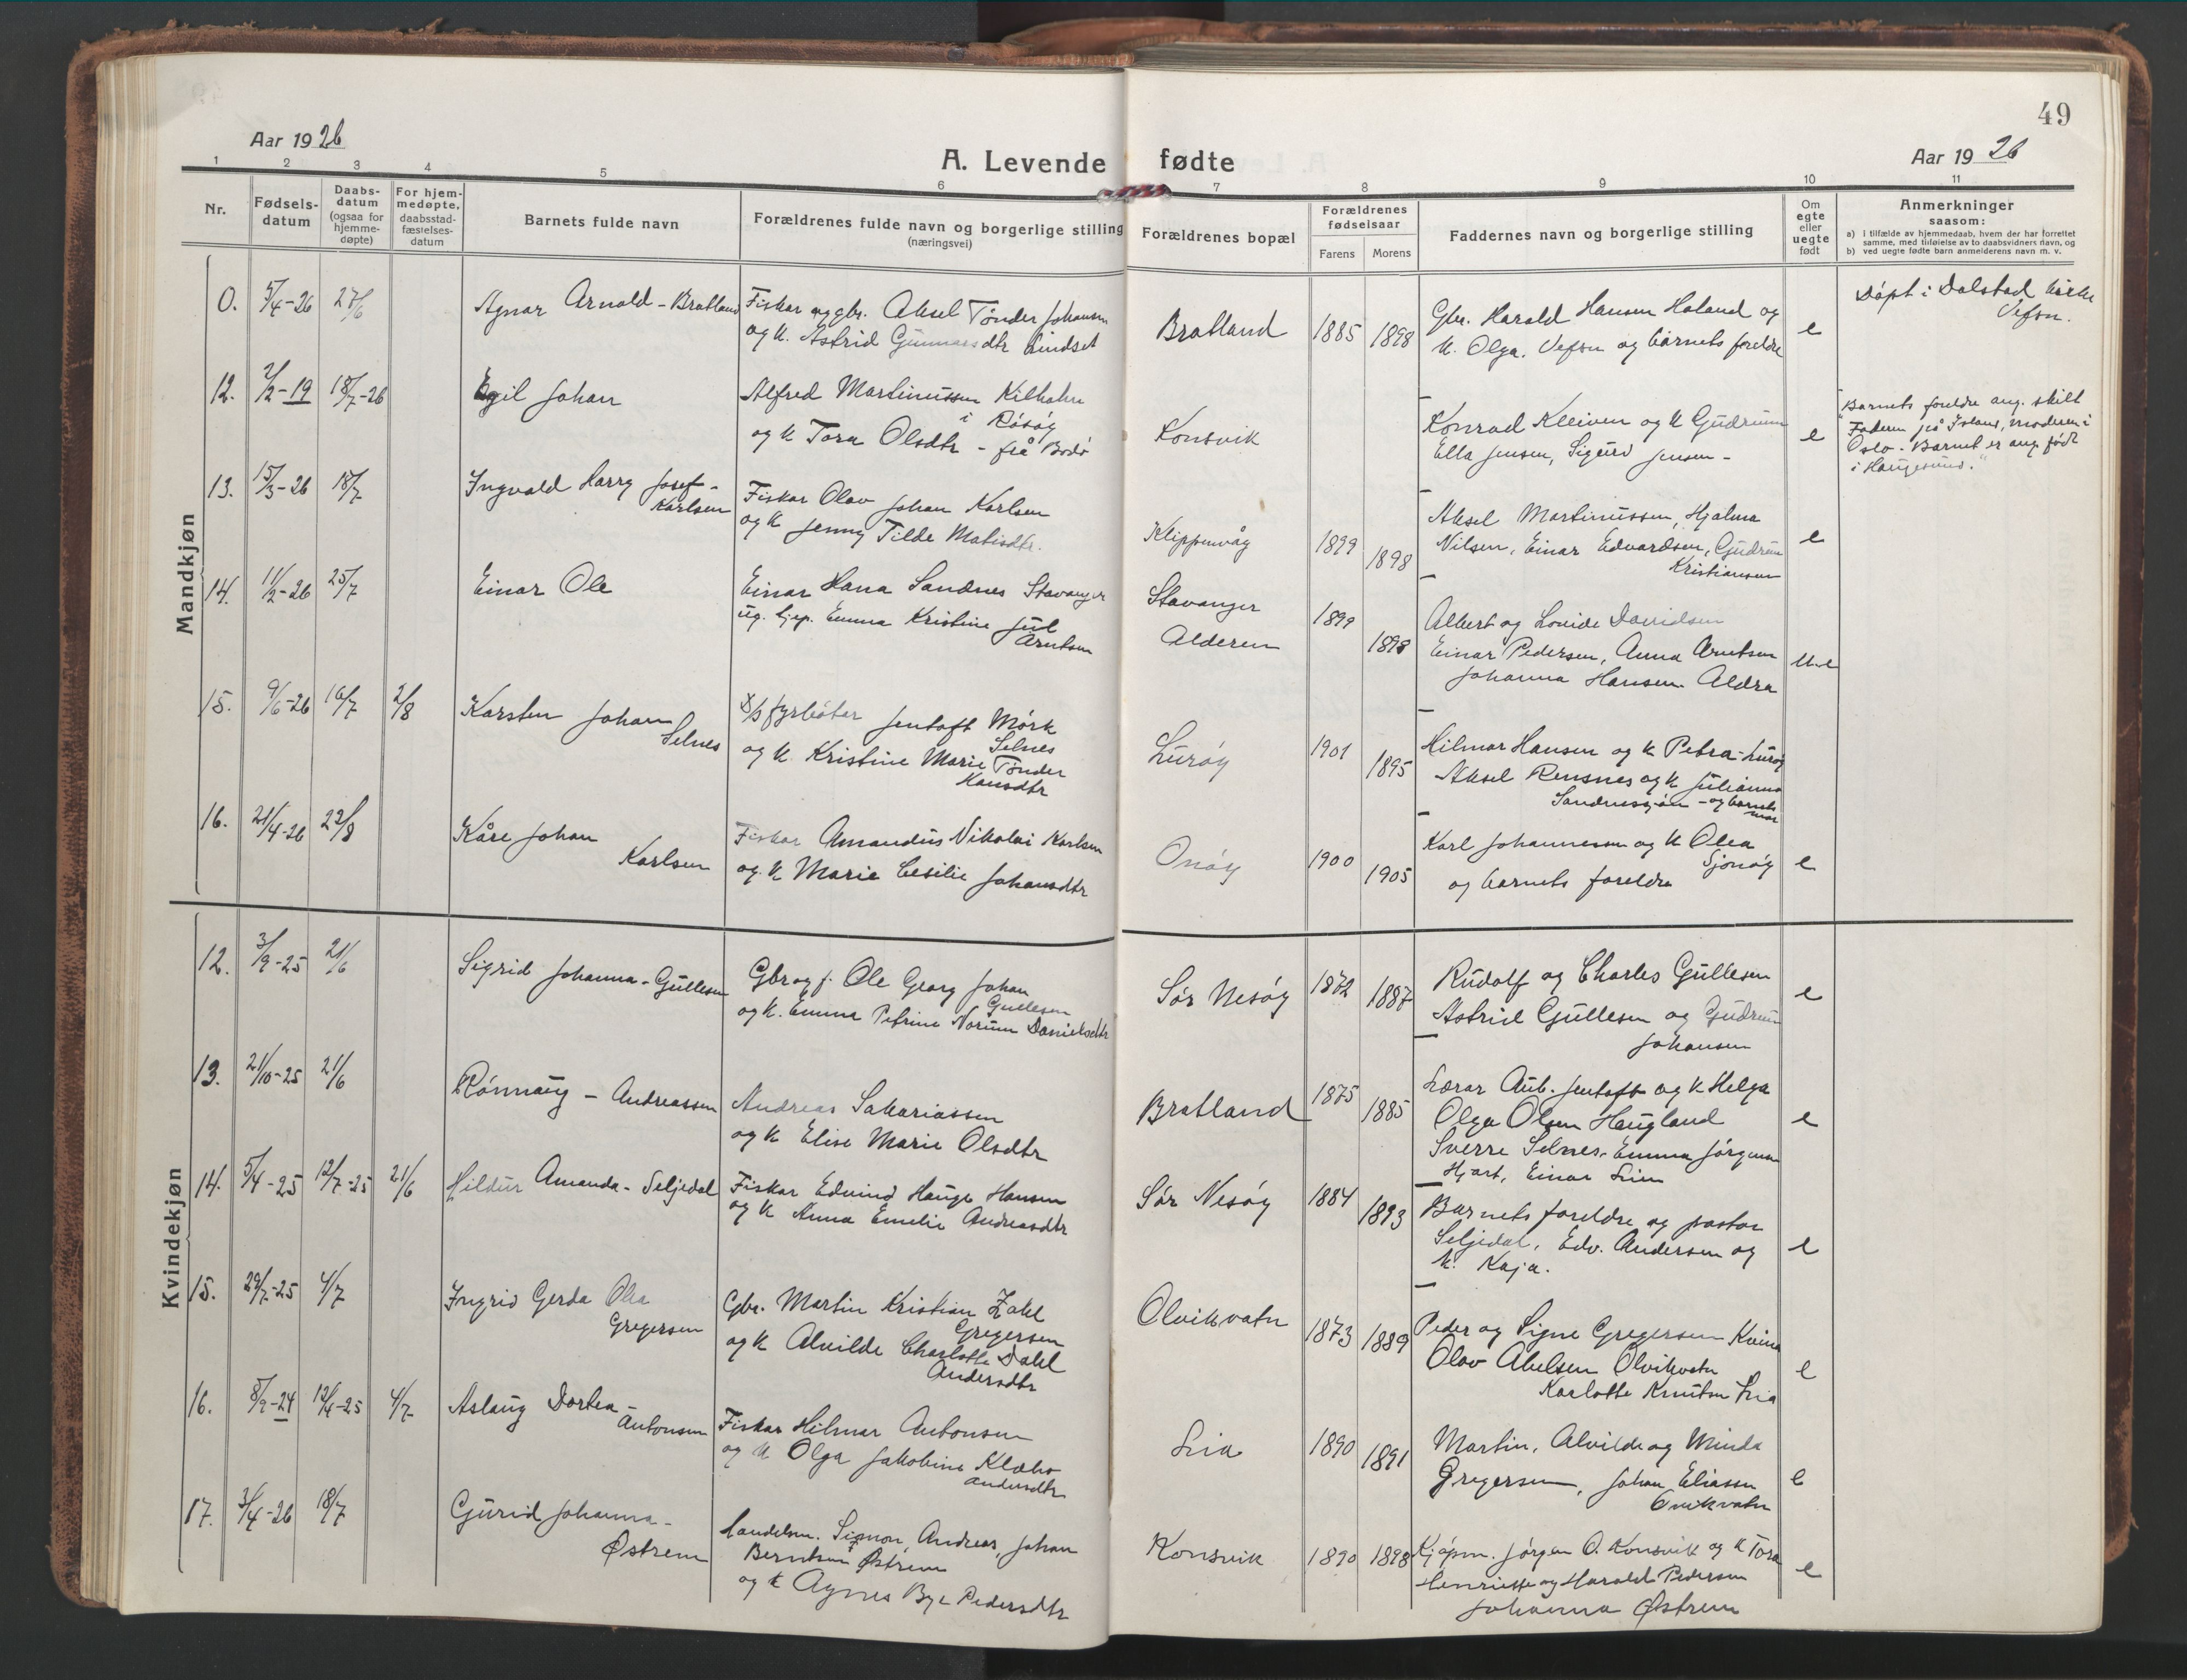 49
Aar 1926
A. Levende fødte
Aar 1926
1 2 3 4 5 6 7 8 9 10 11
Nr.
Fødsels-
datum
Daabs-
datum
(ogsaa for
hjemme-
døpte)
For hjem-
medøpte,
daabsstad-
fæstelses-
datum
Barnets fulde navn
Forældrenes fulde navn og borgerlige stilling
(næringsvei)
Forældrenes bopæl
Forældrenes
fødselsaar
Farens Morens
Faddernes navn og borgerlige stilling
Om
egte
eller
uegte
født
Anmerkninger
saasom:
a) I tilfælde av hjemmedaab, hvem der har forrettet
samme, med tilføielse av to daabsvidners navn, og
b) ved uegte fødte barn anmelderens navn m. v.
Mandkjøn
0. 5/4-26 27/6 Agnar Arnold - Bratland
Fiskar og gbr. Aksel Tønder Johansen
og k. Astrid Gunnarsdtr Lindset
Bratland 1885 1898
Gbr. Harald Hansen Haland og
k. Olga. Vefsn og barnets foreldre
e
Døpt i Dolstad kirke
Vefsn.
12. 2/2-19 18/7-26 Egil Johan
Alfred Martinussen Kilhahn
i Råsøy
og k Tora Olsdtr - frå Bodø
Konsvik
Konrad Kleiven og k Gudrun
Ella Jensen, Sigurd Jensen -
e
"Barnets foreldre ang. skilt
Faderen på Island, moderen i
Oslo. Barnet er ang. født
i Haugesund."
13. 15/3-26 18/7 Ingvald Harry Josef -
Karlsen
Fiskar Olav Johan Karlsen
og k Jenny Tilde Matisdtr.
Klippenvåg 1899 1898
Aksel Martinussen, Hjalma
Nilsen, Einar Edvardsen, Gudrun
Kristiansen
e
14. 11/2-26 25/7 Einar Ole
Einar Hana Sandnes Stavanger
ug. tjen. Emma Kristine Jul
Arntsen
Stavanger 1899
Alderen 1898
Albert og Lovide Davidsen
Einar Pedersen, Anna Arntsen
Johanna Hansen. Aldra
15. 9/6-26 16/7 2/8 Karsten Johan
Selnes
fyrbøter Jentoft Mørk
Selnes
og k. Kristine Marie Tønder
Hansdtr
Lurøy 1901 1895
Hilmar Hansen og k Petra - Lurøy
Aksel Rensnes og k Julianna
Sandnessjøen - og barnets
mor
16. 21/4-26 22/8 Kåre Johan
Karlsen
Fiskar Amandus Nikolai Karlsen
og k Marie Cesilie Johansdtr
Onøy 1900 1905
Karl Johannessen og k Olea
Sjonøy
og barnets foreldre
e
Kvindekjøn
12. 3/9-25 21/6 Sigrid Johanna - Gullesen
Gbr og f. Ole Georg Johan
Gullesen
og k. Emma Petrine Norum Danielsdtr
Sør Nesøy 1872 1887
Rudolf og Charles Gullesen
Astrid Gullesen og Gudrun
Johansen
e
13. 21/10-25 21/6 Rønnaug - Andreassen
Andreas Sakariassen
og k Elise Marie Olsdtr
Bratland 1875 1885
Lærar Ant. Jentoft og k Helga
Olga Olsen Haugland
Sverre Selnes, Emma Jørgensen
Hjart, Einar Lien
e
14. 5/4-25 12/7-25 21/6 Hildur Amanda - Seljedal
Fiskar Edvind Hauge Hansen
og k Anna Emelie Andreasdtr
Sør Nesøy 1884 1893
Barnets foreldre og pastor
Seljedal, Edv. Andersen og
k. Kaja.
e
15. 29/7-25 4/7 Ingrid Gerda Olea
Gregersen
Gbr. Martin Kristian Zahl
Gregersen
og k Alvilde Charlotte Dahl
Andersdtr
Olvikvatn 1873 1889
Peder og Signe Gregersen Kvina
Olav Abelsen Olvikvatn
Karlotte Knutsen Lia
e
16. 8/9-24 12/4-25 4/7 Aslaug Dortea -
Antonsen
Fiskar Hilmar Antonsen
og k Olga Jakobine Klæbo
Andersdtr
Lia 1890 1891
Martin, Alvilde og Minda
Gregersen, Johan Eliassen
Olvikvatn
e
17. 3/4-26 18/7 Gurid Johanna -
Østrem
Handelsm. Simon, Andreas, Johan
Berntsen Østrem
og k Agnes Bye Pedersdtr
Konsvik 1890 1898
Kjøpm. Jørgen O. Konsvik og k Tora
Henriette og Harald Pedersen
Johanna Østrem
e